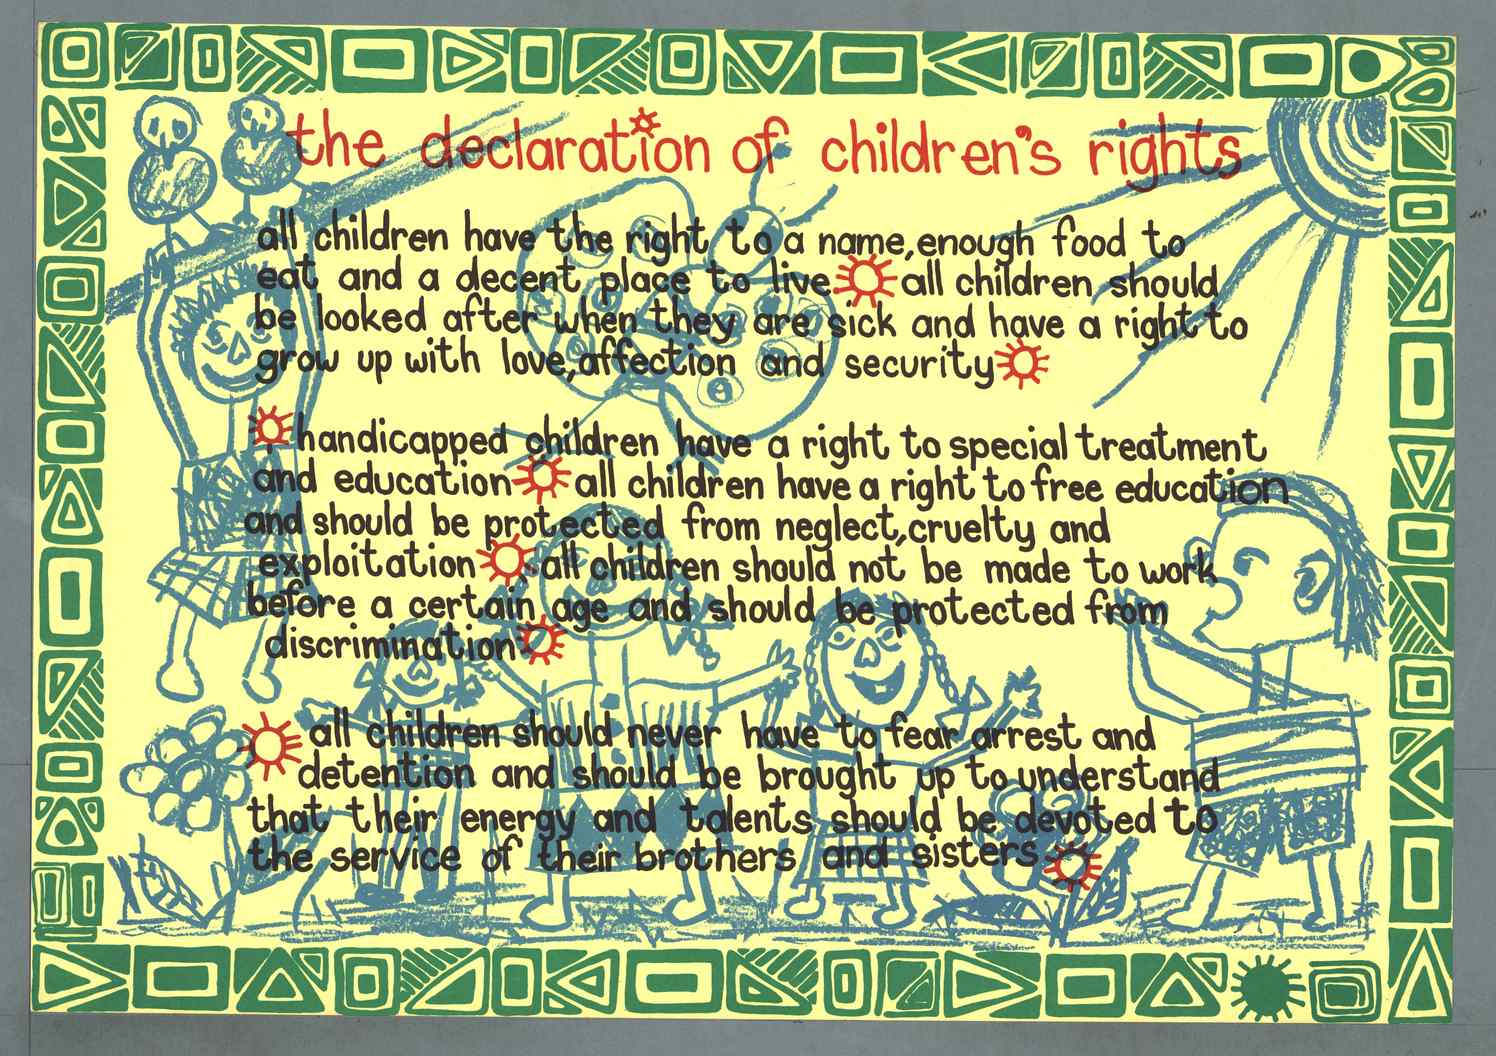 the declaration of children's rights
all children have the right to a name, enough food to
eat and a decent place to live all children should
be looked after when they are sick and have a right to
grow up with love, affection and security
handicapped children have a right to special treatment
and education all children have a right to free education
and should be protected from neglect, cruelty and
exploitation all children should not be made to work
before a certain age and should be protected from
discrimination
all children should never have to fear arrest and
detention and should be brought up to understand
that their energy and talents should be devoted to
the service of their brothers and sisters